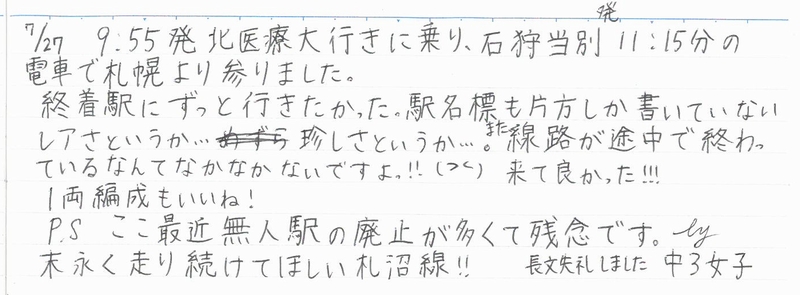 7/27 9:55発 北医療大行きに乗り、石狩当別発 11:15分の
電車で札幌より参りました。
終着駅にずっと行きたかった。駅名標も片方しか書いていない
レアさというか…珍しさというか…。また線路が途中で終わっ
ているなんてなかなかないですよっ!! (つく) 来て良かった!!!
1両編成もいいね!
P.S ここ最近無人駅の廃止が多くて残念です。 by
末永く走り続けてほしい札沼線!! 長文失礼しました 中3女子